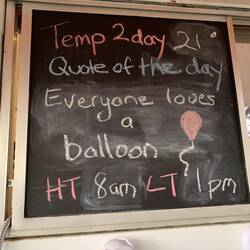 Temp 2day 21°
Quote of the day
Everyone loves
a
balloon
HT 8am LT 1pm